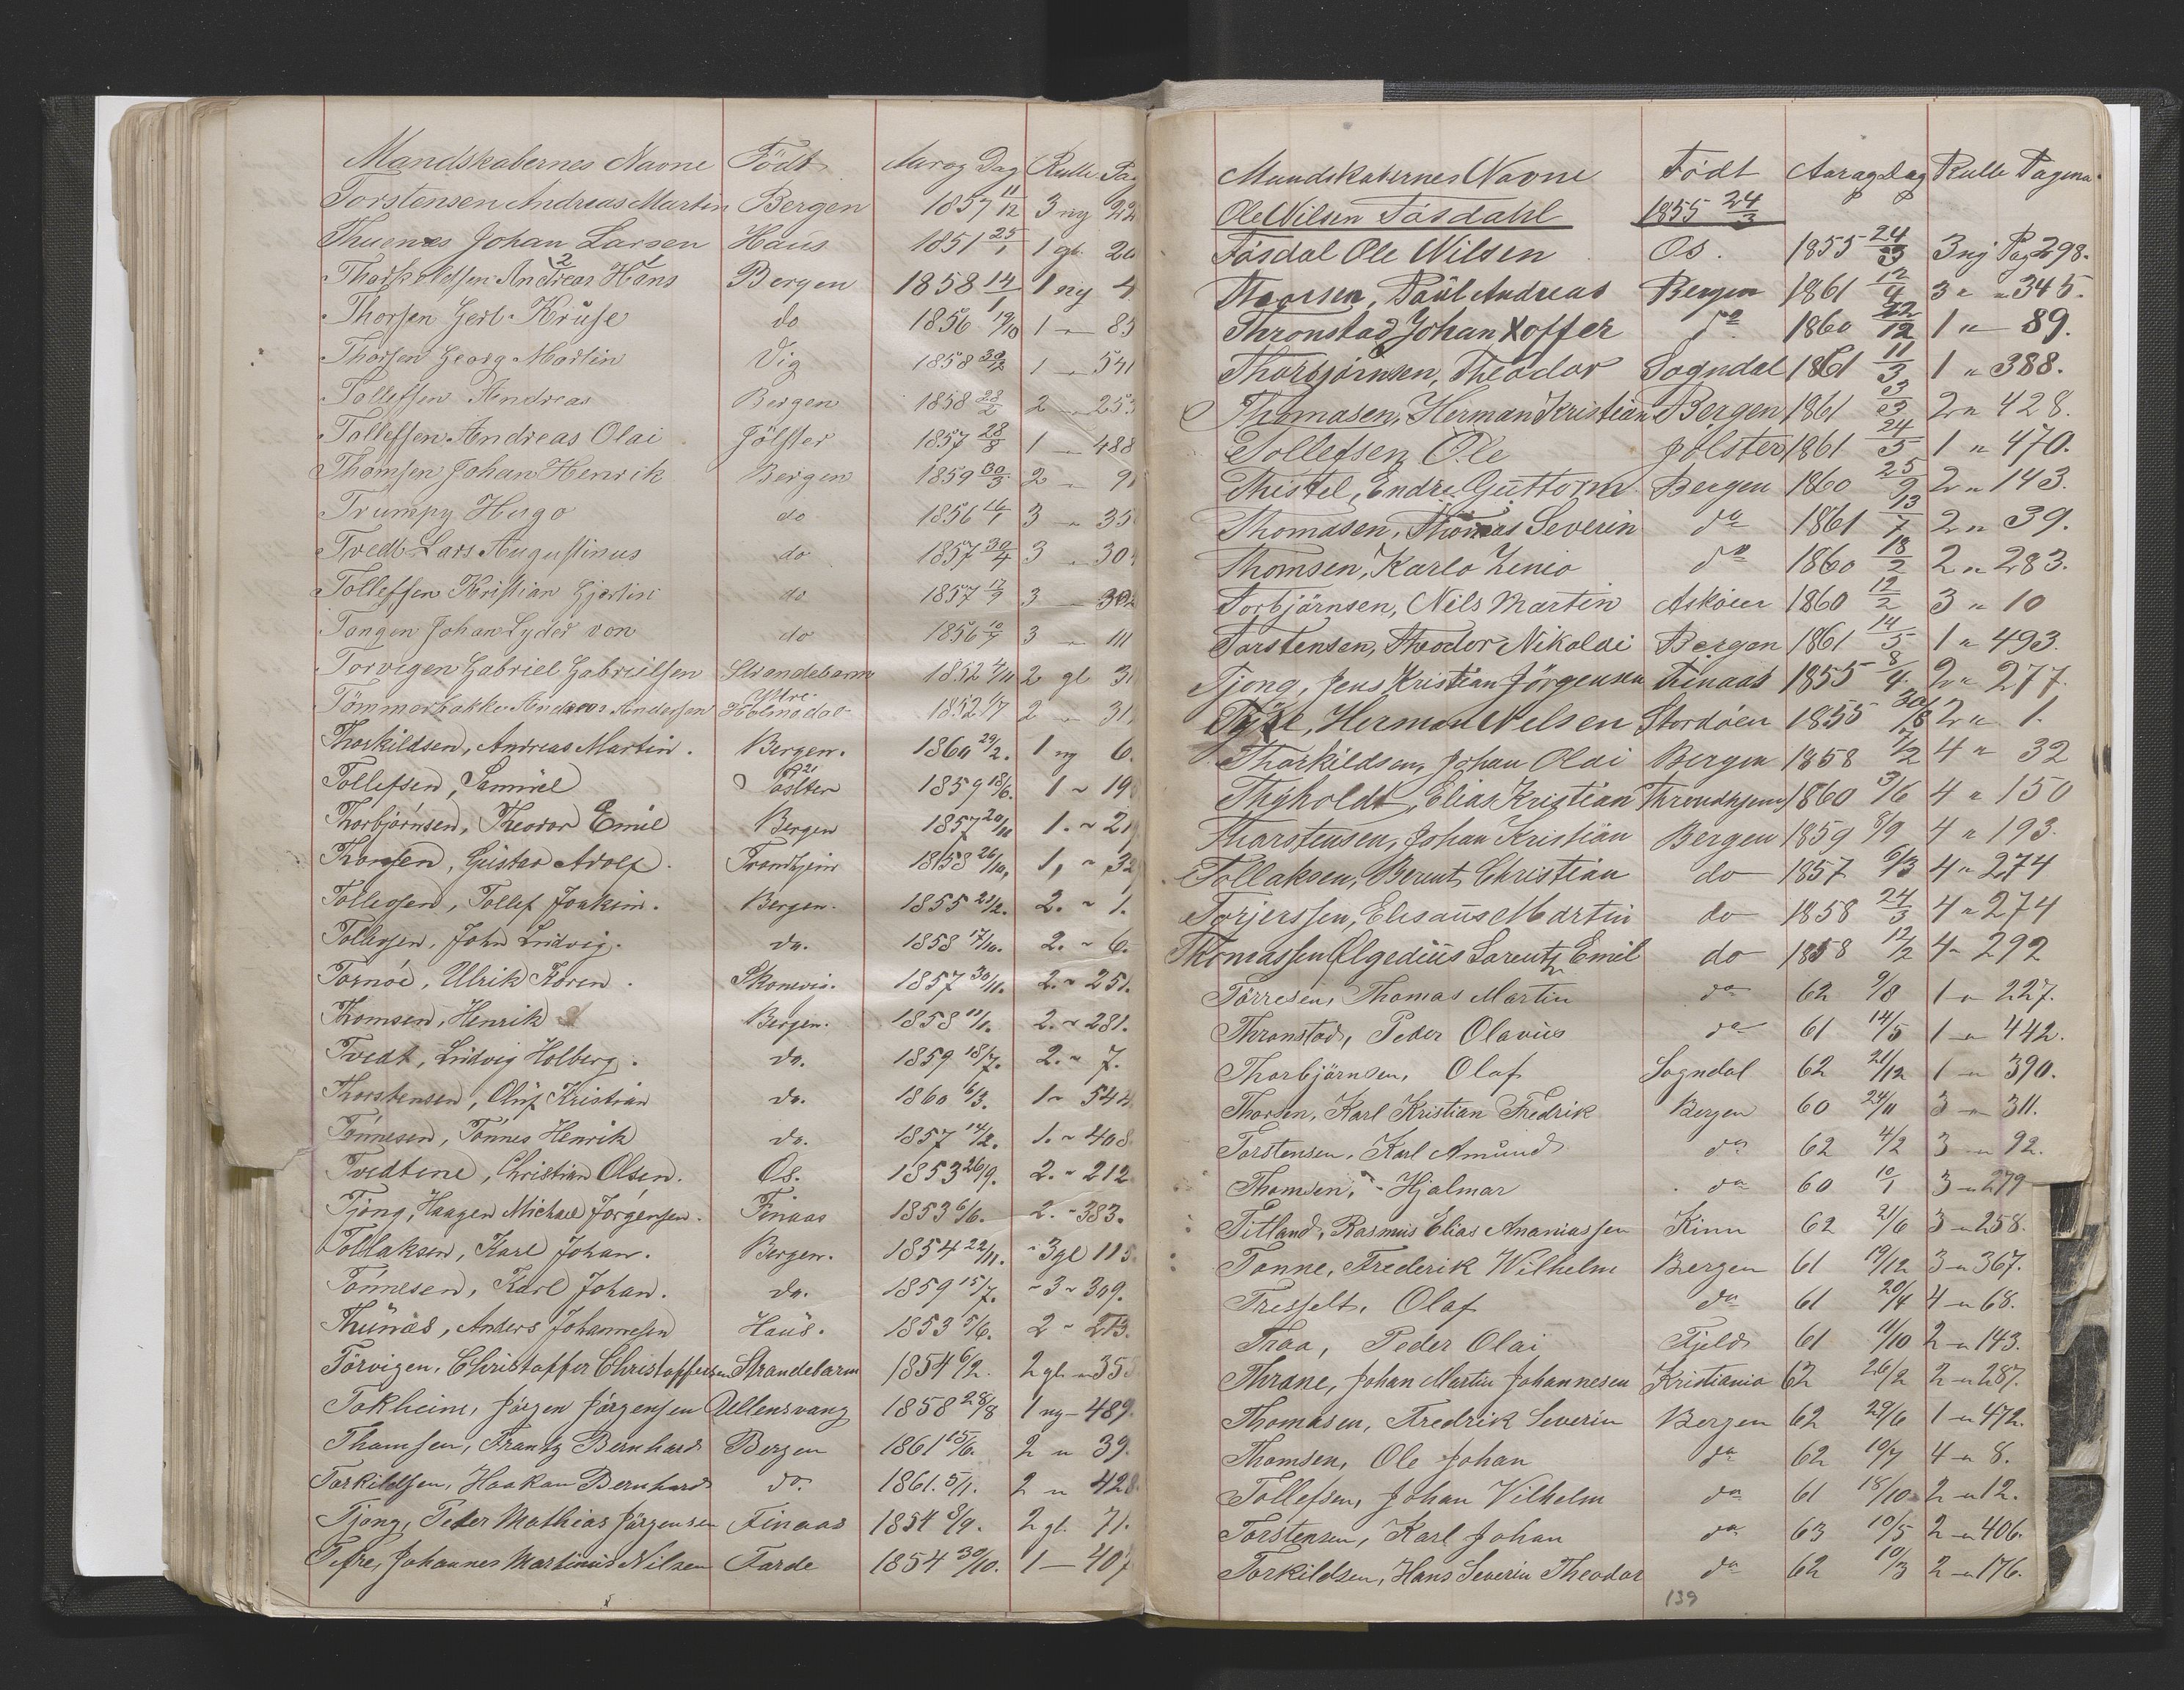 Mandskabernes Navne Födt Aar og Dag Rulle Pag
Torstensen Andreas Martin Bergen 1857 11/12 3 ny 22
Thuenes Johan Larsen Haus 1851 25/1 1 gl. 20
Thorkildsen Andreas Hans Bergen 1858 14/1 1 ny 4
Thorsen Gerb. Kruse do 1856 19/10 1 " 85
Thorsen Georg Martin Vig 1858 30/12 1 " 541
Tollefsen Andreas Bergen 1858 2 " 253
Tollefsen Andreas Olai Jölster 1857 28/8 1 " 488
Thomsen Johan Henrik Bergen 1859 30/3 2 " 9
Trumpy Hugo do 1856 16/1 3 " 35
Tvedt Lars Augustinus do 1857 30/4 3 " 30
Tollefsen Kristian Gjertin do 1857 17/9 3 " 302
Tangen Johan Lyder von do 1856 10/7 3 " 111
Torvigen Gabriel Gabrielsen Strandebarm 1852 4/11 2 gl 3
Tömmerbakke Andreas Andersen Yttre Holmedal 1852 1/7 2 " 31
Thorkildsen, Andreas Martin. Bergen. 1860 29/2. 1 ny 6.
Tollefsen, Samuel Jölster 1859 18/6. 1 " 19
Thorbjörnsen, Theodor Emil Bergen 1857 20/10 1. " 2
Thorsen, Gustav Adolf. Trondhjem 1858 26/10, 1, " 32
Tollefsen, Tollef Joakim. Bergen. 1855 21/2. 2. " 1.
Tollefsen, John Ludvig. do. 1858 17/10. 2. " 6.
Tornöe, Ulrik Koren. Skonevig. 1857 30/11. 2. " 251.
Thomsen, Henrik Bergen. 1858 11/1. 2. " 281.
Tvedt, Ludvig Holberg. do. 1859 18/7. 2. " 7.
Thorstensen, Oluf Kristian do. 1860 6/3. 1 " 544
Tönnesen, Tönnes Henrik do. 1857 14/2. 1. " 408
Tvedtene, Christian Olsen. Os. 1853 26/9. 2. " 212
Tjöng, Haagen Michael Jörgensen. Finaas 1853 6/6. 2. " 383.
Tollaksen, Karl Johan. Bergen. 1854 22/11. " 3 gl 115.
Tönnesen, Karl Johan. do. 1859 15/7. " 3 " 309.
Thunæs, Anders Johannesen Haus. 1853 5/6. 2 " 273.
Törvigen, Christoffer Christoffersen Strandebarm 1854 6/2. 2 gl. " 355
Tokheim, Jörgen Jörgensen Ullensvang 1858 28/8 1 ny " 489.
Thomsen, Frantz Bernhard Bergen 1861 15/6. 2 " 39.
Torkildsen, Haakon Bernhard do. 1861. 5/1. 2 " 428
Tjong, Peder Mathias Jörgensen Finaas 1854 8/9. 2 gl. 71.
Tefre, Johannes Martinius Nilsen Førde 1854 30/10. 1 — 407
Mandskabernes Navne Födt Aar og Dag Rulle Pagina.
Ole Nilsen Tösdahl 1855 24/3
Tösdal Ole Nilsen Os. 1855 24/3 3 ny Pag 298.
Thorsen, Paul Andreas Bergen 1861 12/4 3 " " 345.
Thronstad Johan Xoffer do 1860 22/12 1 " 89.
Thorbjörnsen, Theodor Sogndal 1861 11/3 1 " 388.
Thomasen, Herman Kristian Bergen 1861 23/3 2 " 428.
Tollefsen, Ole Jölster 1861 24/5 1 " 470.
Thistel, Endre Guttorm Bergen 1860 25/9 2 " 143.
Thomasen, Thomas Severin do 1861 13/7 2 " 39.
Thomsen, Karlo Zenio do 1860 18/2 2 " 283.
Torbjörnsen, Nils Martin Asköen 1860 12/2 3 " 10
Torstensen, Theodor Nikolai Bergen 1861 14/5 1 " 493.
Tjong, Jens Kristian Jörgensen Finaas 1855 8/4. 2 " 277.
Herman Nilsen Stordöen 1855 30/8 2 " 1.
Thorkildsen, Johan Olai Bergen 1858 7/12 4 " 32
Thyholdt, Elias Kristian Throndhjem 1860 3/6 4 " 150
Thorstensen, Johan Kristian Bergen 1859 8/9 4 " 193.
Tollaksen, Berent Christian do 1857 6/3 4 " 274
Torjerssen, Elisæus Martin do 1858 24/3 4 " 274
Thomassen Olgedius Lorentz Emil do 1858 12/2 4 " 292
Törresen, Thomas Martin do 62 9/8 1 " 227.
Thronstad, Peder Olavius do 61 14/5 1 " 442.
Thorbjörnsen, Olaf Sogndal 62 21/12 1 " 390.
Thorsen, Karl Kristian Fredrik Bergen 60 24/11 3 " 311.
Torstensen, Karl Amund do 62 4/2 3 " 92.
Thomsen, Hjalmar do 60 10/1 3 " 279
Titland, Rasmus Elias Ananiassen Kinn 62 21/6 3 " 258.
Tonne, Frederik Wilhelm Bergen 61 19/12 3 " 367.
Tresselt, Olaf do 61 20/4 4 " 68.
Traa, Peder Olai Fjeld 61 11/10 2 " 143.
Thrane, Johan Martin Johannesen Kristiania 62 26/2 2 " 287.
Thomasen, Fredrik Severin Bergen 62 29/6 1 " 472.
Thomsen, Ole Johan do 62 10/7 4 " 8.
Tollefsen, Johan Vilhelm do 61 18/10 2 " 12.
Torstensen, Karl Johan do 63 10/5 2 " 406.
Torkildsen, Hans Severin Theodor do 62 10/3 2 " 176.
139